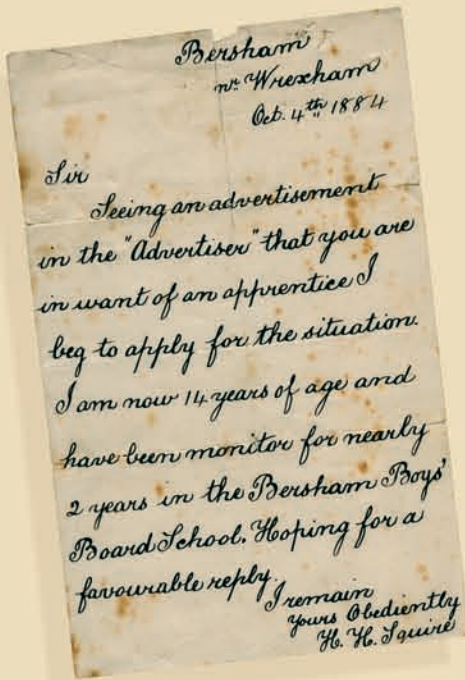 Bersham
nr Wrexham
Oct. 4th 1884
Sir
Seeing an advertisement
in the "Advertiser" that you are
in want of an apprentice I
beg to apply for the situation.
I am now 14 years of age and
have been monitor for nearly
2 years in the Bersham Boys'
Board School. Hoping for a
favourable reply.
I remain
Yours Obediently
H. H. Squire